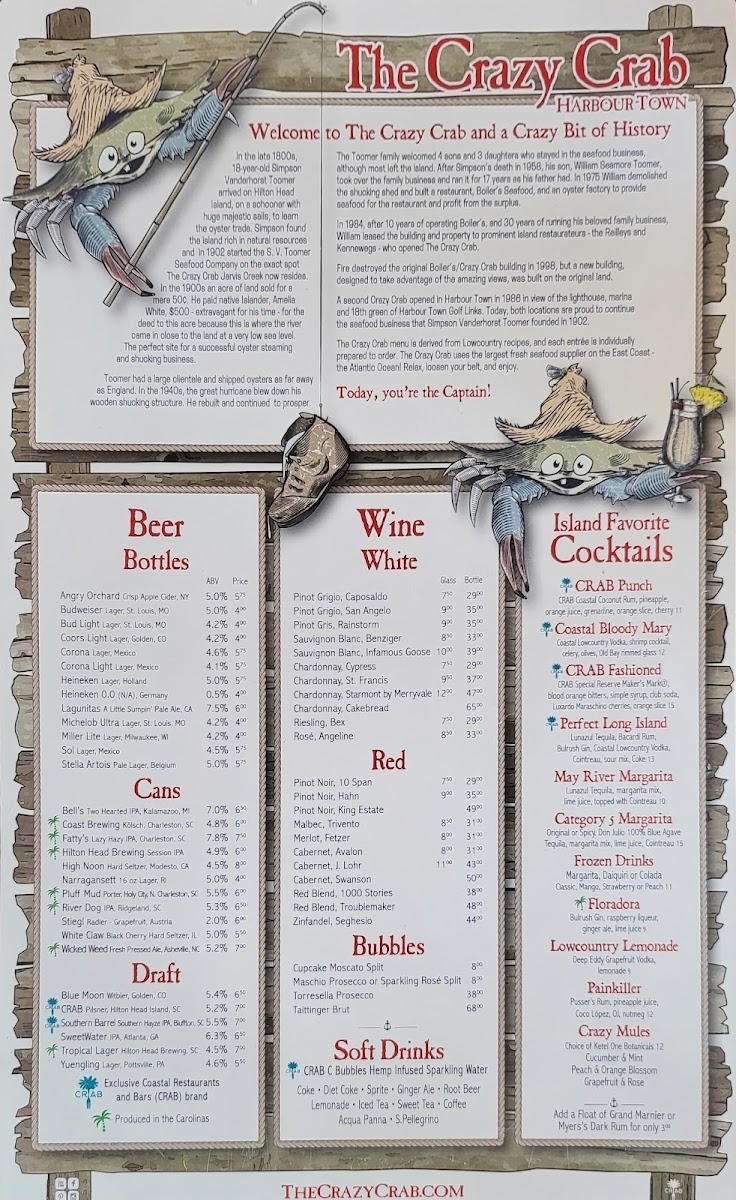 The Crazy Crab
Harbour Town
Welcome to The Crazy Crab and a Crazy Bit of History
In the late 1800s,
18-year-old Simpson
Vanderhorst Toomer
arrived on Hilton Head
Island, on a schooner with
huge majestic sails, to learn
the oyster trade. Simpson found
the island rich in natural resources
and in 1902 started the S. V. Toomer
Seafood Company on the exact spot
The Crazy Crab Jarvis Creek now resides.
In the 1900s an acre of land sold for a
mere 50¢. He paid native Islander, Amelia
White, $500 - extravagant for his time - for the
deed to this acre because this is where the river
came in close to the land at a very low sea level.
The perfect site for a successful oyster steaming
and shucking business.
Toomer had a large clientele and shipped oysters as far away
as England. In the 1940s, the great hurricane blew down his
wooden shucking structure. He rebuilt and continued to prosper.
The Toomer family welcomed 4 sons and 3 daughters who stayed in the seafood business,
although most left the island. After Simpson's death in 1958, his son, William Seamore Toomer,
took over the family business and ran it for 17 years as his father had. In 1975 William demolished
the shucking shed and built a restaurant, Boiler's Seafood, and an oyster factory to provide
seafood for the restaurant and profit from the surplus.
In 1984, after 10 years of operating Boiler's, and 30 years of running his beloved family business,
William leased the building and property to prominent island restaurateurs - the Reilleys and
Kennewegs - who opened The Crazy Crab.
Fire destroyed the original Boiler's/Crazy Crab building in 1998, but a new building,
designed to take advantage of the amazing views, was built on the original land.
A second Crazy Crab opened in Harbour Town in 1986 in view of the lighthouse, marina
and 18th green of Harbour Town Golf Links. Today, both locations are proud to continue
the seafood business that Simpson Vanderhorst Toomer founded in 1902.
The Crazy Crab menu is derived from Lowcountry recipes, and each entrée is individually
prepared to order. The Crazy Crab uses the largest fresh seafood supplier on the East Coast -
the Atlantic Ocean! Relax, loosen your belt, and enjoy.
Today, you're the Captain!
Beer
Bottles
ABV Price
Angry Orchard Crisp Apple Cider, NY 5.0% 575
Budweiser Lager, St. Louis, MO 5.0% 400
Bud Light Lager, St. Louis, MO 4.2% 400
Coors Light Lager, Golden, CO 4.2% 400
Corona Lager, Mexico 4.6% 575
Corona Light Lager, Mexico 4.1% 575
Heineken Lager, Holland 5.0% 575
Heineken 0.0 (N/A), Germany 0.5% 400
Lagunitas A Little Sumpin' Pale Ale, CA 7.5% 600
Michelob Ultra Lager, St. Louis, MO 4.2% 400
Miller Lite Lager, Milwaukee, WI 4.2% 400
Sol Lager, Mexico 4.5% 575
Stella Artois Pale Lager, Belgium 5.0% 575
Cans
Bell's Two Hearted IPA, Kalamazoo, MI 7.0% 650
Coast Brewing Kölsch, Charleston, SC 4.8% 600
Fatty's Lazy Hazy IPA, Charleston, SC 7.8% 750
Hilton Head Brewing Session IPA 4.9% 600
High Noon Hard Seltzer, Modesto, CA 4.5% 800
Narragansett 16 oz Lager, RI 5.0% 400
Pluff Mud Porter, Holy City, N. Charleston, SC 5.5% 600
River Dog IPA, Ridgeland, SC 5.3% 650
Stiegl Radler - Grapefruit, Austria 2.0% 600
White Claw Black Cherry Hard Seltzer, IL 5.0% 550
Wicked Weed Fresh Pressed Ale, Asheville, NC 5.2% 700
Draft
Blue Moon Witbier, Golden, CO 5.4% 650
CRAB Pilsner, Hilton Head Island, SC 5.2% 700
Southern Barrel Southern Hayze IPA, Bluffton, SC 5.5% 700
SweetWater IPA, Atlanta, GA 6.3% 650
Tropical Lager Hilton Head Brewing, SC 4.5% 700
Yuengling Lager, Pottsville, PA 4.6% 550
CRAB
Exclusive Coastal Restaurants
and Bars (CRAB) brand
Produced in the Carolinas
Wine
White
Glass Bottle
Pinot Grigio, Caposaldo 750 2900
Pinot Grigio, San Angelo 900 3500
Pinot Gris, Rainstorm 900 3500
Sauvignon Blanc, Benziger 850 3300
Sauvignon Blanc, Infamous Goose 1000 3900
Chardonnay, Cypress 750 2900
Chardonnay, St. Francis 950 3700
Chardonnay, Starmont by Merryvale 1200 4700
Chardonnay, Cakebread 6500
Riesling, Bex 750 2900
Rosé, Angeline 850 3300
Red
Pinot Noir, 10 Span 750 2900
Pinot Noir, Hahn 900 3500
Pinot Noir, King Estate 4900
Malbec, Trivento 850 3100
Merlot, Fetzer 800 3100
Cabernet, Avalon 800 3100
Cabernet, J. Lohr 1100 4300
Cabernet, Swanson 5000
Red Blend, 1000 Stories 3800
Red Blend, Troublemaker 4800
Zinfandel, Seghesio 4400
Bubbles
Cupcake Moscato Split 800
Maschio Prosecco or Sparkling Rosé Split 800
Torresella Prosecco 3800
Taittinger Brut 6800
Soft Drinks
CRAB C Bubbles Hemp Infused Sparkling Water
Coke • Diet Coke • Sprite • Ginger Ale • Root Beer
Lemonade • Iced Tea • Sweet Tea • Coffee
Acqua Panna • S.Pellegrino
Island Favorite
Cocktails
CRAB Punch
CRAB Coastal Coconut Rum, pineapple,
orange juice, grenadine, orange slice, cherry 11
Coastal Bloody Mary
Coastal Lowcountry Vodka, shrimp cocktail,
celery, olives, Old Bay rimmed glass 12
CRAB Fashioned
CRAB Special Reserve Maker's Mark®,
blood orange bitters, simple syrup, club soda,
Luxardo Maraschino cherries, orange slice 15
Perfect Long Island
Lunazul Tequila, Bacardi Rum,
Bulrush Gin, Coastal Lowcountry Vodka,
Cointreau, sour mix, Coke 13
May River Margarita
Lunazul Tequila, margarita mix,
lime juice, topped with Cointreau 10
Category 5 Margarita
Original or Spicy, Don Julio 100% Blue Agave
Tequila, margarita mix, lime juice, Cointreau 15
Frozen Drinks
Margarita, Daiquiri or Colada
Classic, Mango, Strawberry or Peach 11
Floradora
Bulrush Gin, raspberry liqueur,
ginger ale, lime juice 9
Lowcountry Lemonade
Deep Eddy Grapefruit Vodka,
lemonade 9
Painkiller
Pusser's Rum, pineapple juice,
Coco López, OJ, nutmeg 12
Crazy Mules
Choice of Ketel One Botanicals 12
Cucumber & Mint
Peach & Orange Blossom
Grapefruit & Rose
Add a Float of Grand Marnier or
Myers's Dark Rum for only 300
TheCrazyCrab.com
CRAB